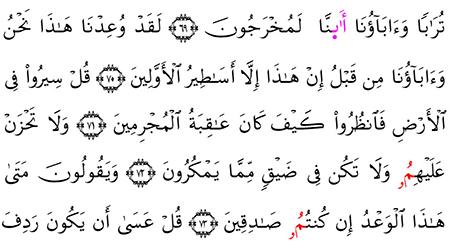 تُرَٰبًا وَءَابَآؤُنَا أَ.نَّا لَمُخْرَجُونَ ﴿٦٩﴾ لَقَدْ وُعِدْنَا هَٰذَا نَحْنُ
وَءَابَآؤُنَا مِن قَبْلُ إِنْ هَٰذَا إِلَّا أَسَٰطِيرُ ٱلْأَوَّلِينَ ﴿٧٠﴾ قُلْ سِيرُوا۟ فِى
ٱلْأَرْضِ فَٱنظُرُوا۟ كَيْفَ كَانَ عَٰقِبَةُ ٱلْمُجْرِمِينَ ﴿٧١﴾ وَلَا تَحْزَنْ
عَلَيْهِمُۥ وَلَا تَكُن فِى ضِيْقٍ مِّمَّا يَمْكُرُونَ ﴿٧٢﴾ وَيَقُولُونَ مَتَىٰ
هَٰذَا ٱلْوَعْدُ إِن كُنتُمُۥ صَٰدِقِينَ ﴿٧٣﴾ قُلْ عَسَىٰ أَن يَكُونَ رَدِفَ